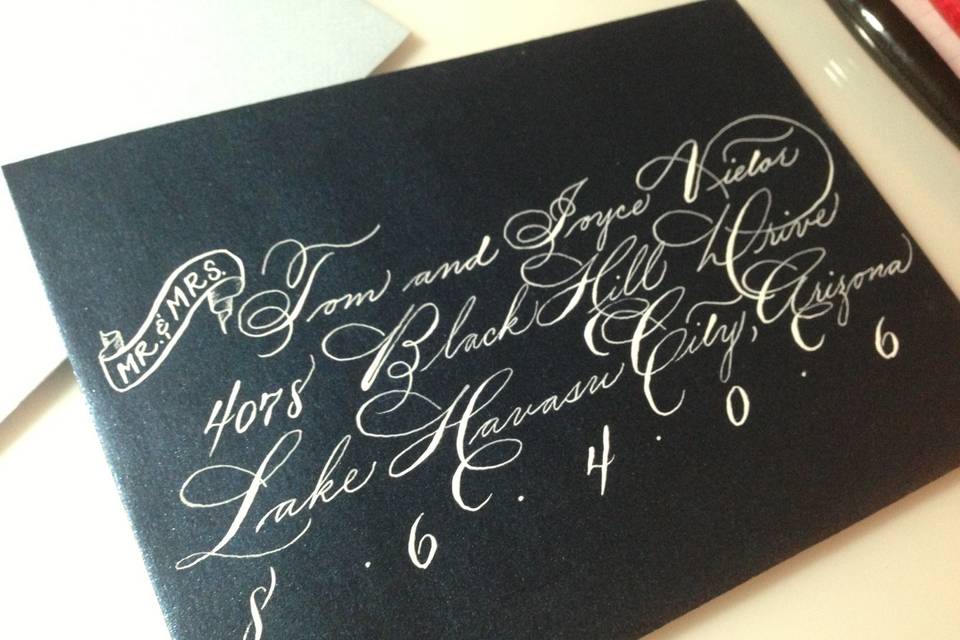 MR. & MRS.
Tom and Joyce Vietor
4078 Black Hill Drive
Lake Havasu City, Arizona
8 . 6 . 4 . 0 . 6